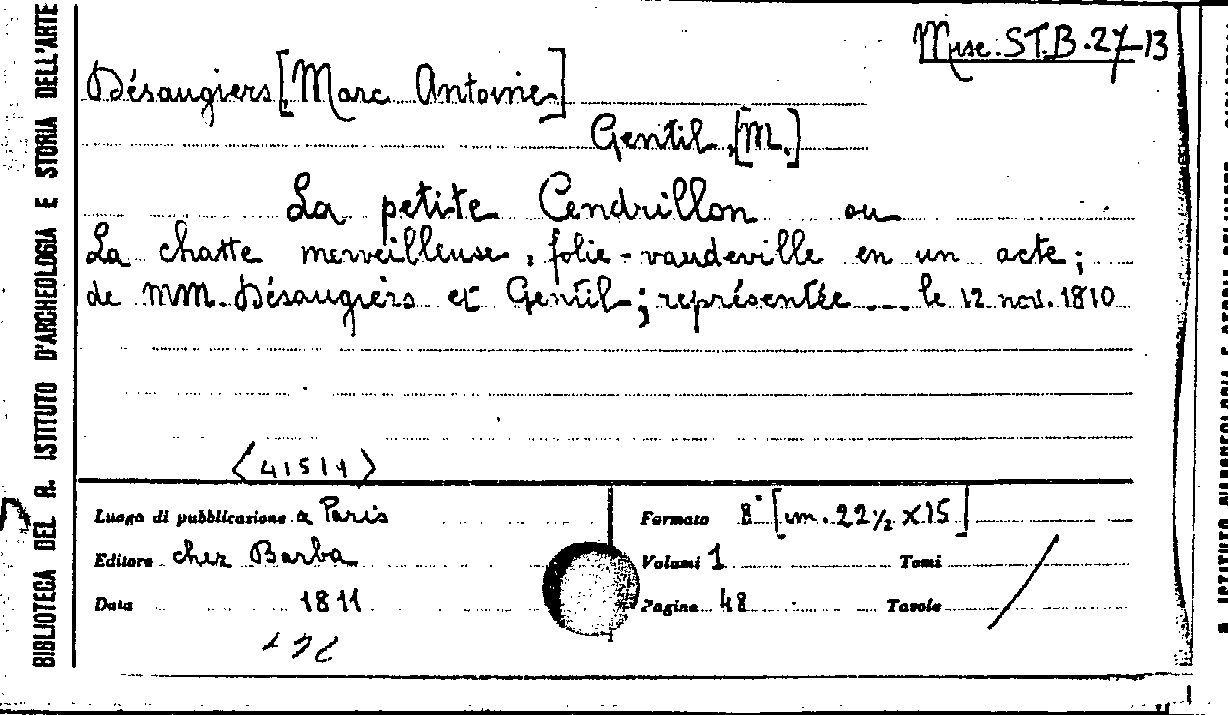 Misc. ST.B.27-13
Désaugiers [Marc Antoine]
Gentil, [M.]
La petite Cendrillon ou
La chatte merveilleuse, folie-vaudeville en un acte;
de MM. Désaugiers et Gentil; représentée ... le 12 nov. 1810
Luogo di pubblicazione à Paris
Editore chez Barba
Data 1811
Formato 8° [cm. 22½ X 15]
Volumi 1 Tomi
Pagine 48 Tavole
BIBLIOTECA DEL R. ISTITUTO D'ARCHEOLOGIA E STORIA DELL'ARTE